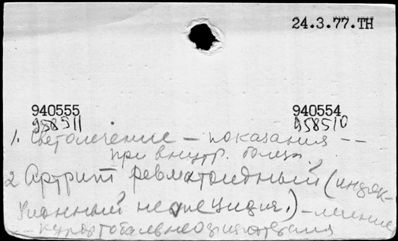 24.3.77.ТН
940555 940554
958511 958510
1. Светолечение – показания --
при внутр. болезн.
2 Артрит ревматоидный (инфек-
ционный неспецифич.) – лечение
– курортобальнео